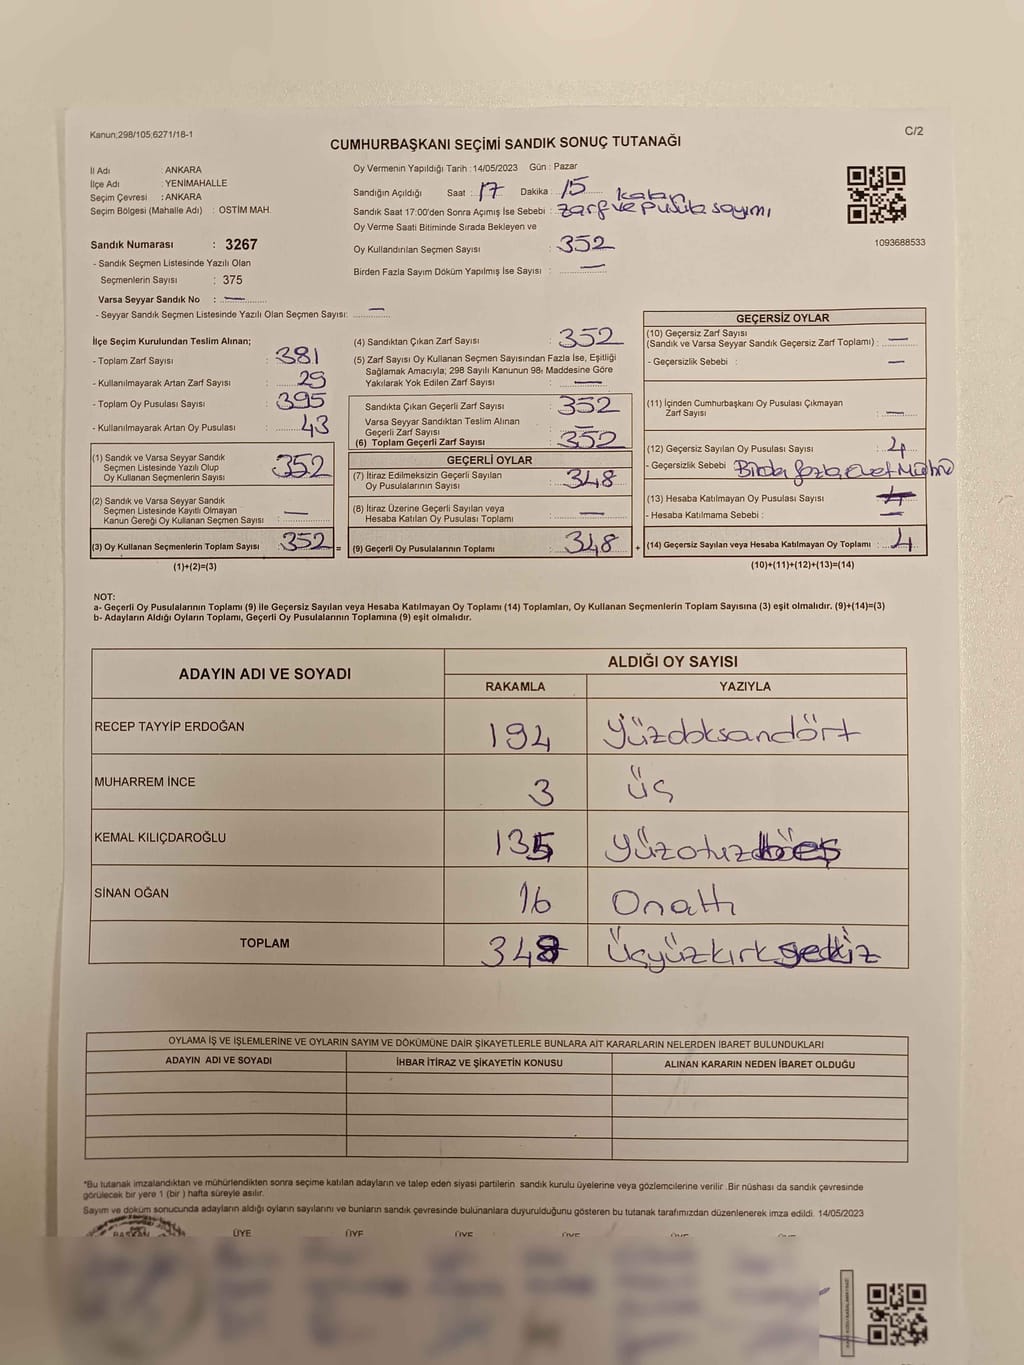 Kanun;298/105;6271/18-1
C/2
CUMHURBAŞKANI SEÇİMİ SANDIK SONUÇ TUTANAĞI
İl Adı : ANKARA
İlçe Adı : YENİMAHALLE
Seçim Çevresi : ANKARA
Seçim Bölgesi (Mahalle Adı) : OSTİM MAH.
Sandık Numarası : 3267
- Sandık Seçmen Listesinde Yazılı Olan
Seçmenlerin Sayısı : 375
Varsa Seyyar Sandık No : —
- Seyyar Sandık Seçmen Listesinde Yazılı Olan Seçmen Sayısı: —
Oy Vermenin Yapıldığı Tarih : 14/05/2023 Gün : Pazar
Sandığın Açıldığı Saat : 17 Dakika : 15
Sandık Saat 17:00'den Sonra Açımış İse Sebebi : zarf ve pusula sayımı
Oy Verme Saati Bitiminde Sırada Bekleyen ve
Oy Kullandırılan Seçmen Sayısı : 352
Birden Fazla Sayım Döküm Yapılmış İse Sayısı : —
1093688533
İlçe Seçim Kurulundan Teslim Alınan;
- Toplam Zarf Sayısı : 381
- Kullanılmayarak Artan Zarf Sayısı : 29
- Toplam Oy Pusulası Sayısı : 395
- Kullanılmayarak Artan Oy Pusulası : 43
(1) Sandık ve Varsa Seyyar Sandık
Seçmen Listesinde Yazılı Olup
Oy Kullanan Seçmenlerin Sayısı : 352
(2) Sandık ve Varsa Seyyar Sandık
Seçmen Listesinde Kayıtlı Olmayan
Kanun Gereği Oy Kullanan Seçmen Sayısı : —
(3) Oy Kullanan Seçmenlerin Toplam Sayısı : 352 =
(1)+(2)=(3)
(4) Sandıktan Çıkan Zarf Sayısı : 352
(5) Zarf Sayısı Oy Kullanan Seçmen Sayısından Fazla İse, Eşitliği
Sağlamak Amacıyla; 298 Sayılı Kanunun 98. Maddesine Göre
Yakılarak Yok Edilen Zarf Sayısı : —
Sandıkta Çıkan Geçerli Zarf Sayısı : 352
Varsa Seyyar Sandıktan Teslim Alınan
Geçerli Zarf Sayısı : —
(6) Toplam Geçerli Zarf Sayısı : 352
GEÇERLİ OYLAR
(7) İtiraz Edilmeksizin Geçerli Sayılan
Oy Pusulalarının Sayısı : 348
(8) İtiraz Üzerine Geçerli Sayılan veya
Hesaba Katılan Oy Pusulası Toplamı : —
(9) Geçerli Oy Pusulalarının Toplamı : 348 +
GEÇERSİZ OYLAR
(10) Geçersiz Zarf Sayısı
(Sandık ve Varsa Seyyar Sandık Geçersiz Zarf Toplamı) : —
- Geçersizlik Sebebi : —
(11) İçinden Cumhurbaşkanı Oy Pusulası Çıkmayan
Zarf Sayısı : —
(12) Geçersiz Sayılan Oy Pusulası Sayısı : 4
- Geçersizlik Sebebi : fazla Evet
(13) Hesaba Katılmayan Oy Pusulası Sayısı : —
- Hesaba Katılmama Sebebi :
(14) Geçersiz Sayılan veya Hesaba Katılmayan Oy Toplamı : 4
(10)+(11)+(12)+(13)=(14)
NOT:
a- Geçerli Oy Pusulalarının Toplamı (9) ile Geçersiz Sayılan veya Hesaba Katılmayan Oy Toplamı (14) Toplamları, Oy Kullanan Seçmenlerin Toplam Sayısına (3) eşit olmalıdır. (9)+(14)=(3)
b- Adayların Aldığı Oyların Toplamı, Geçerli Oy Pusulalarının Toplamına (9) eşit olmalıdır.
ADAYIN ADI VE SOYADI ALDIĞI OY SAYISI
RAKAMLA YAZIYLA
RECEP TAYYİP ERDOĞAN 194 Yüzdoksandört
MUHARREM İNCE 3 üç
KEMAL KILIÇDAROĞLU 135 yüzotuzbeş
SİNAN OĞAN 16 Onaltı
TOPLAM 348 Üçyüzkırksekiz
OYLAMA İŞ VE İŞLEMLERİNE VE OYLARIN SAYIM VE DÖKÜMÜNE DAİR ŞİKAYETLERLE BUNLARA AİT KARARLARIN NELERDEN İBARET BULUNDUKLARI
ADAYIN ADI VE SOYADI İHBAR İTİRAZ VE ŞİKAYETİN KONUSU ALINAN KARARIN NEDEN İBARET OLDUĞU
*Bu tutanak imzalandıktan ve mühürlendikten sonra seçime katılan adayların ve talep eden siyasi partilerin sandık kurulu üyelerine veya gözlemcilerine verilir .Bir nüshası da sandık çevresinde
görülecek bir yere 1 (bir ) hafta süreyle asılır.
Sayım ve döküm sonucunda adayların aldığı oyların sayılarını ve bunların sandık çevresinde bulunanlara duyurulduğunu gösteren bu tutanak tarafımızdan düzenlenerek imza edildi. 14/05/2023
BAŞKAN ÜYE ÜYE ÜYE ÜYE